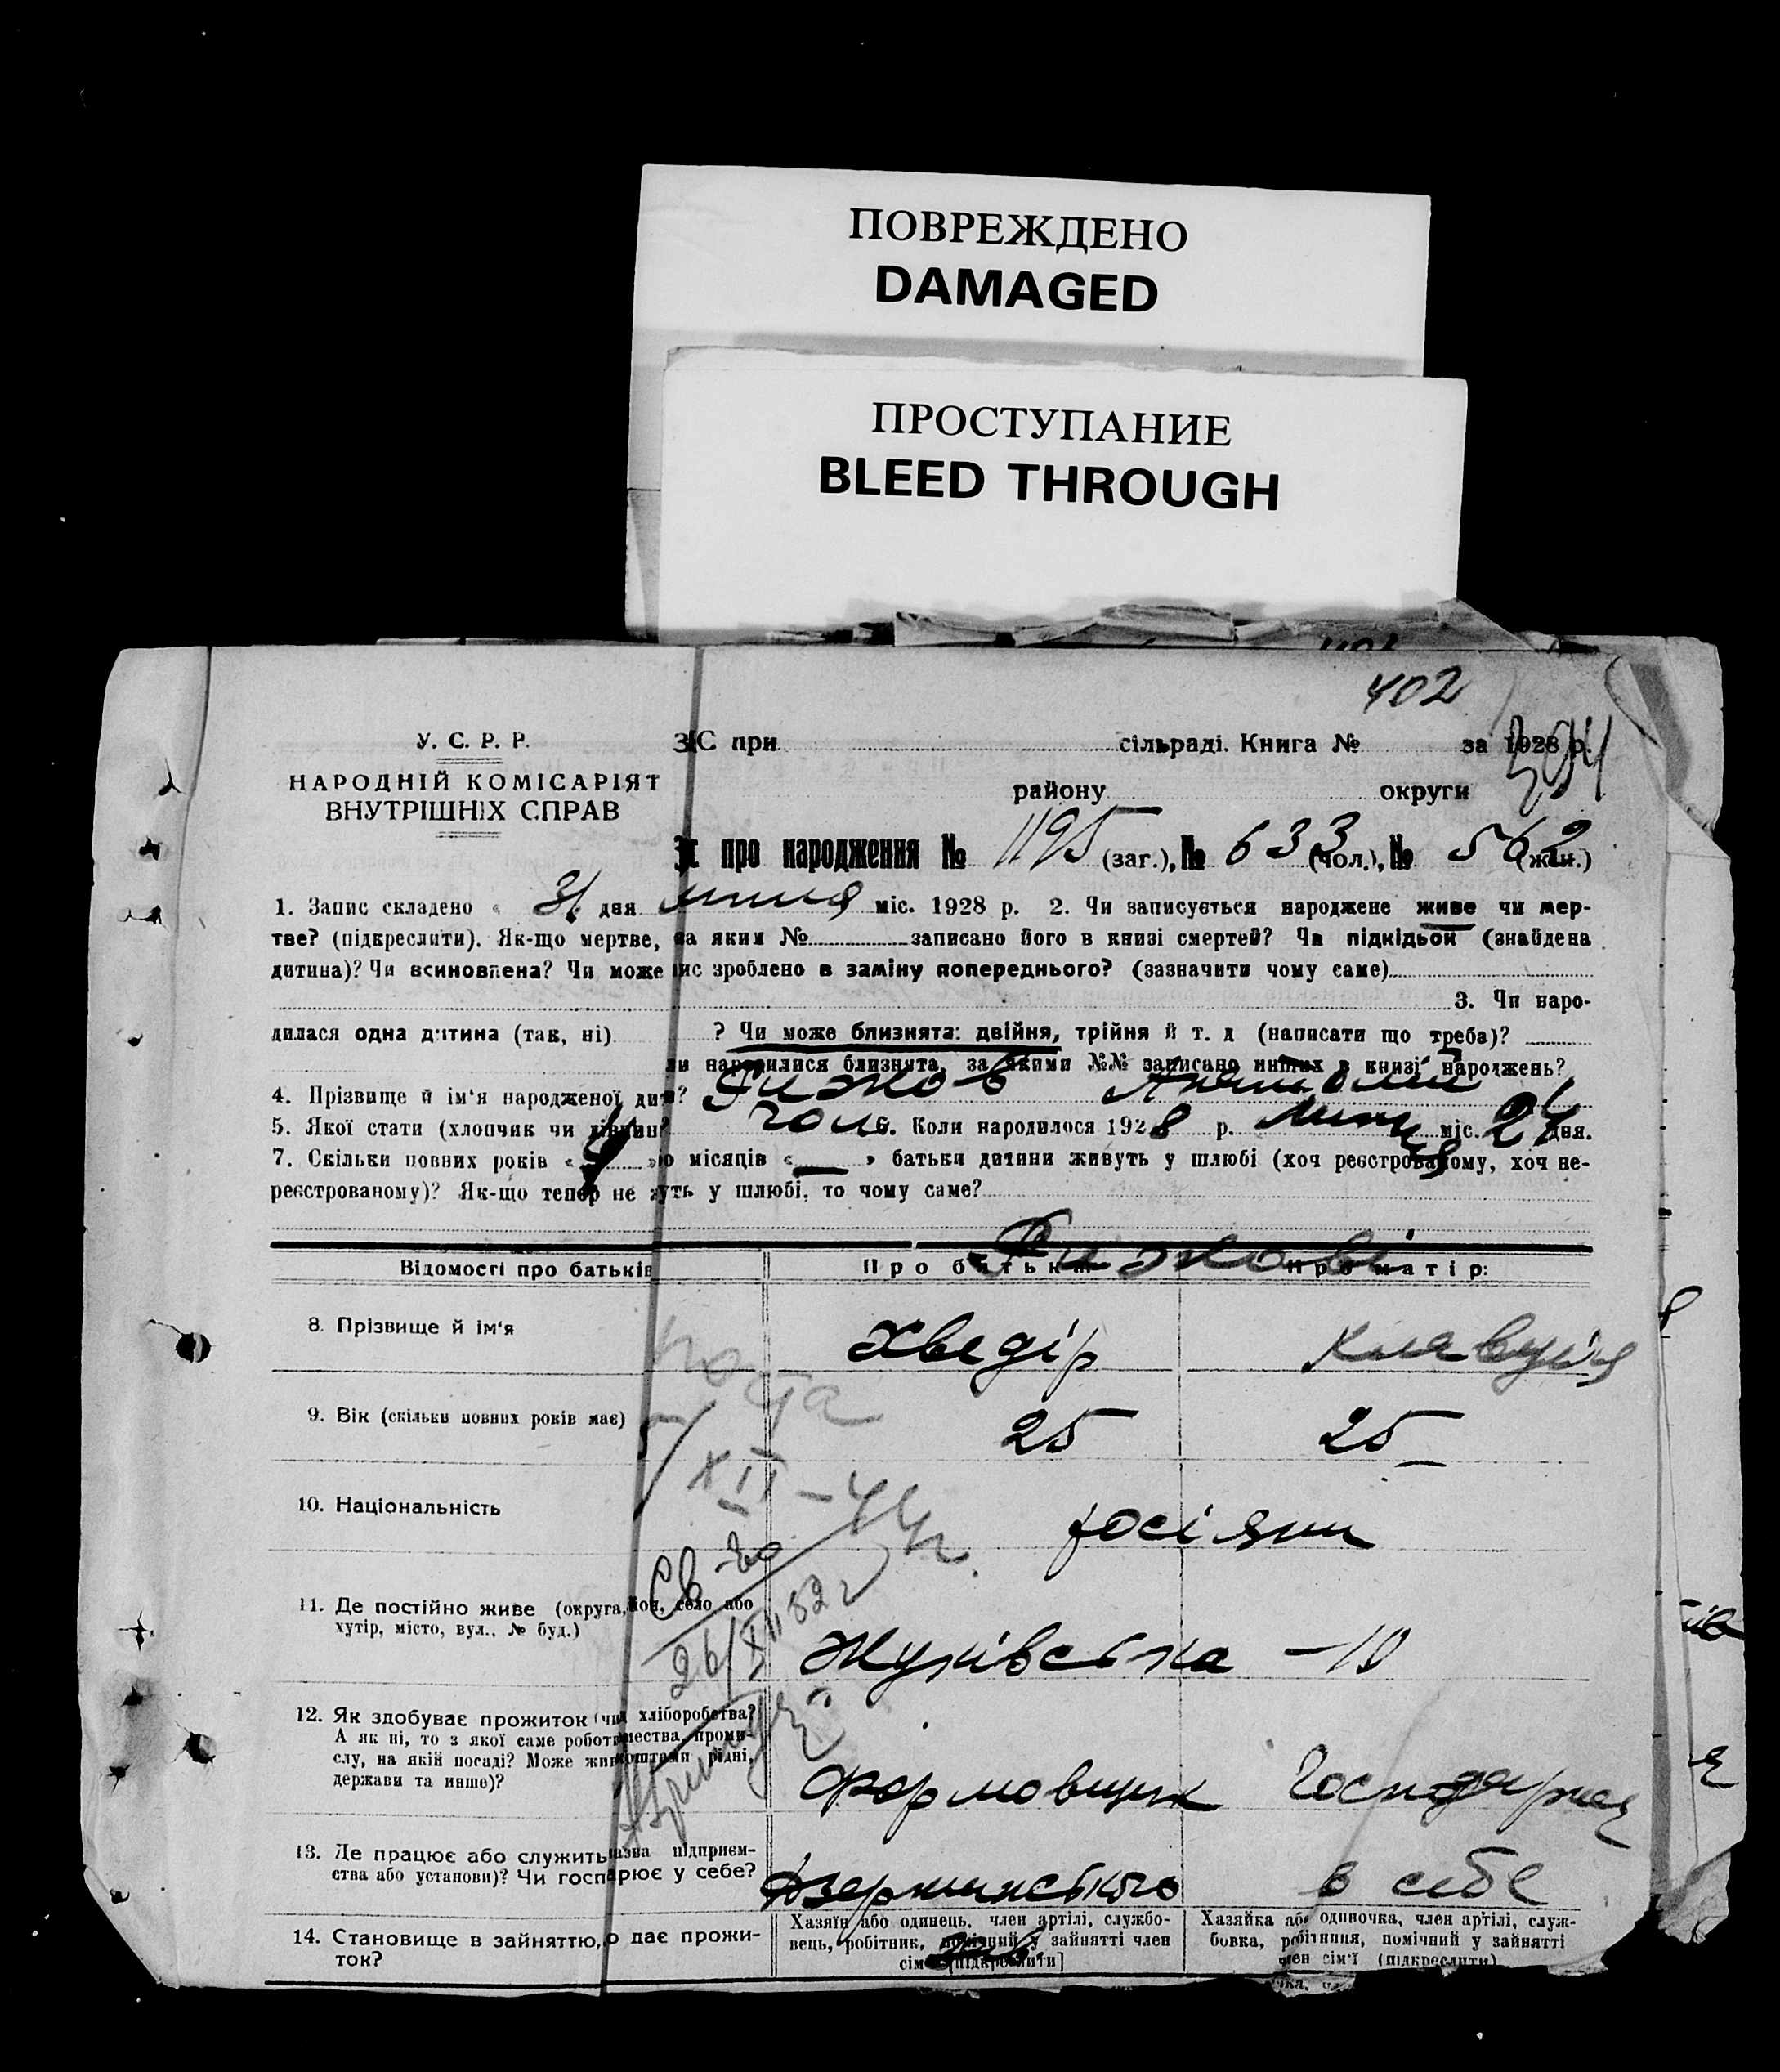 ПОВРЕЖДЕНО
DAMAGED
ПРОСТУПАНИЕ
BLEED THROUGH
402
У. С. Р. Р.
НАРОДНІЙ КОМІСАРІЯТ
ВНУТРІШНІХ СПРАВ
ЗАС при сільраді. Книга № за 1928 р.
району округи
про народження № 1195 (заг.), № 633 (чол.), № 562 (жін.)
1. Запис складено « 31 дня липня міс. 1928 р. 2. Чи записується народжене живе чи мер-
тве? (підкреслити). Як-що мертве, за яким № записано його в книзі смертей? Чи підкідьок (знайдена
дитина)? Чи всиновлена? Чи може пис зроблено в заміну попереднього? (зазначити чому саме)
3. Чи наро-
дилася одна дитина (так, ні) ? Чи може близнята: двійня, трійня й т. д (написати що треба)?
ли народилися близнята, за якими №№ записано инших в книзі народжень?
4. Прізвище й ім'я народженої дити? Рижов Анатолій
5. Якої стати (хлопчик чи дівчин? чол 6. Коли народилося 1928 р. липня міс. 24 дня.
7. Скільки повних років « 4 » ю місяців « — » батьки дитини живуть у шлюбі (хоч реєстрованому, хоч не-
реєстрованому)? Як-що тепер не уть у шлюбі, то чому саме?
Рижови
Відомості про батьків Про батька Про матір:
8. Прізвище й ім'я Хведір Клавдія
9. Вік (скільки повних років має) 25 25
XII – 44 г.
10. Національність росіяни
Св-во
26/XII 52 г
11. Де постійно живе (округа, йон, село або
хутір, місто, вул., № буд.) Жуківська – 10
12. Як здобуває прожиток (чи хліборобства?
А як ні, то з якої саме робот мества, проми-
слу, на якій посаді? Може жив коштами рідні,
держави та инше)? Формовщик Господарка
13. Де працює або служить азва підприєм-
ства або установи)? Чи госпарює у себе? Дзержинського в себе
14. Становище в зайняттю, о дає прожи-
ток?
Хазяїн або одинець, член артілі, службо-
вець, робітник, помічний у зайнятті член
сім [підкреслити]
Хазяйка або одиночка, член артілі, служ-
бовка, робітниця, помічний у зайнятті
член сім'ї (підкреслити)